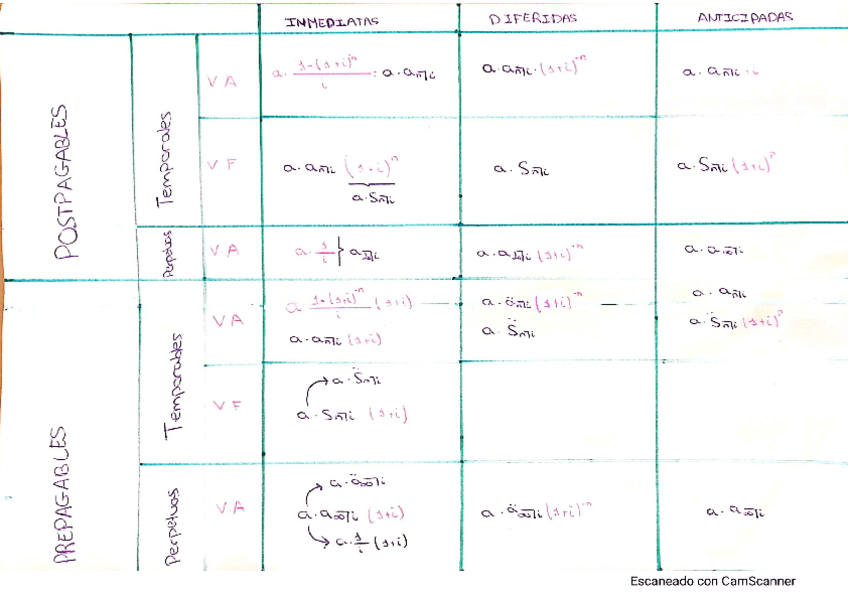 INMEDIATAS DIFERIDAS ANTICIPADAS
POSTPAGABLES
Temporales
VA
a · 1-(1+i)^-n / i : a · a n̅|i
a · a n̅|i · (1+i)^-n
a · a n̅|i · i
VF
a · a n̅|i (1+i)^n
a · S n̅|i
a · S n̅|i
a · S n̅|i (1+i)^n
Perpetuos
VA
a · 1/i } a ∞̅|i
a · a ∞̅|i (1+i)^-n
a · a ∞̅|i
PREPAGABLES
Temporables
VA
a 1-(1+i)^-n / i (1+i)
a · a n̅|i (1+i)
a · ä n̅|i (1+i)^-n
a · S̈ n̅|i
a · a n̅|i
a · S̈ n̅|i (1+i)^n
VF
a · S̈ n̅|i
a · S n̅|i (1+i)
Perpetuos
VA
a · ä ∞̅|i
a · a ∞̅|i (1+i)
a · 1/i (1+i)
a · ä ∞̅|i (1+i)^-n
a · a ∞̅|i
Escaneado con CamScanner